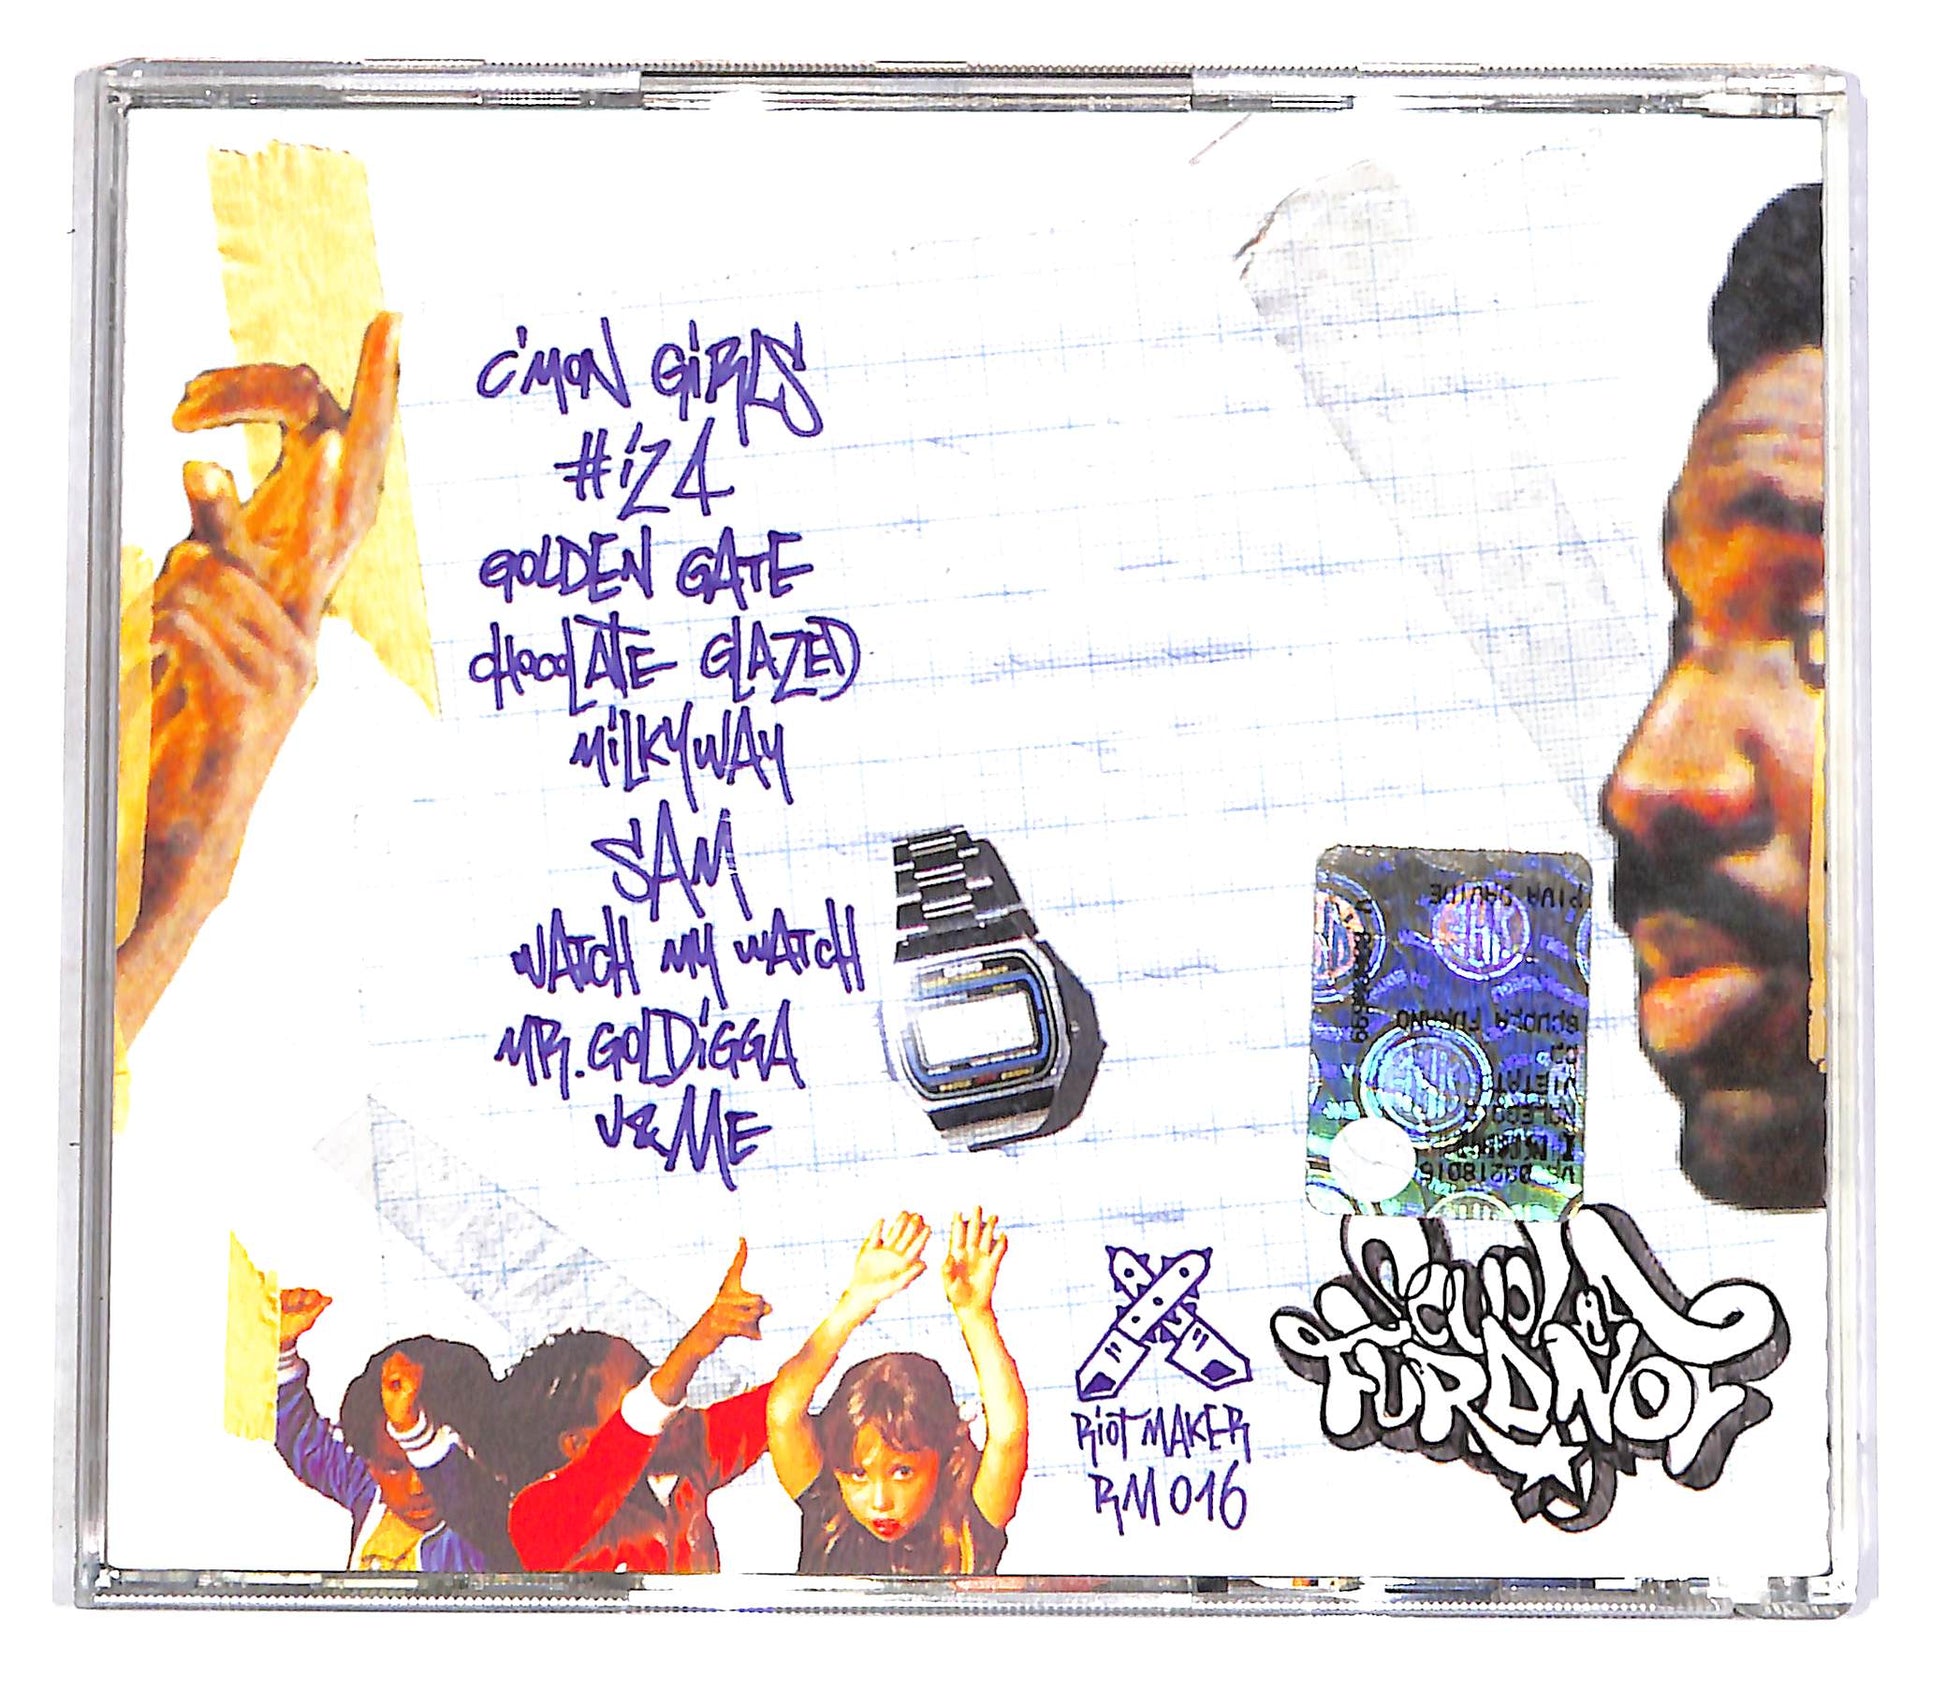 C'MON GiRLS
#124
GOLDEN GATE
CHOCOLATE GLAZED
MiLKYWAY
SAM
WATCH MY WATCH
MR. GOLDiGGA
J&ME
PIVA DAVIDE
SCUOLA FURANO
RiOT MAKER
RM 016
SCUOLA
FURANO